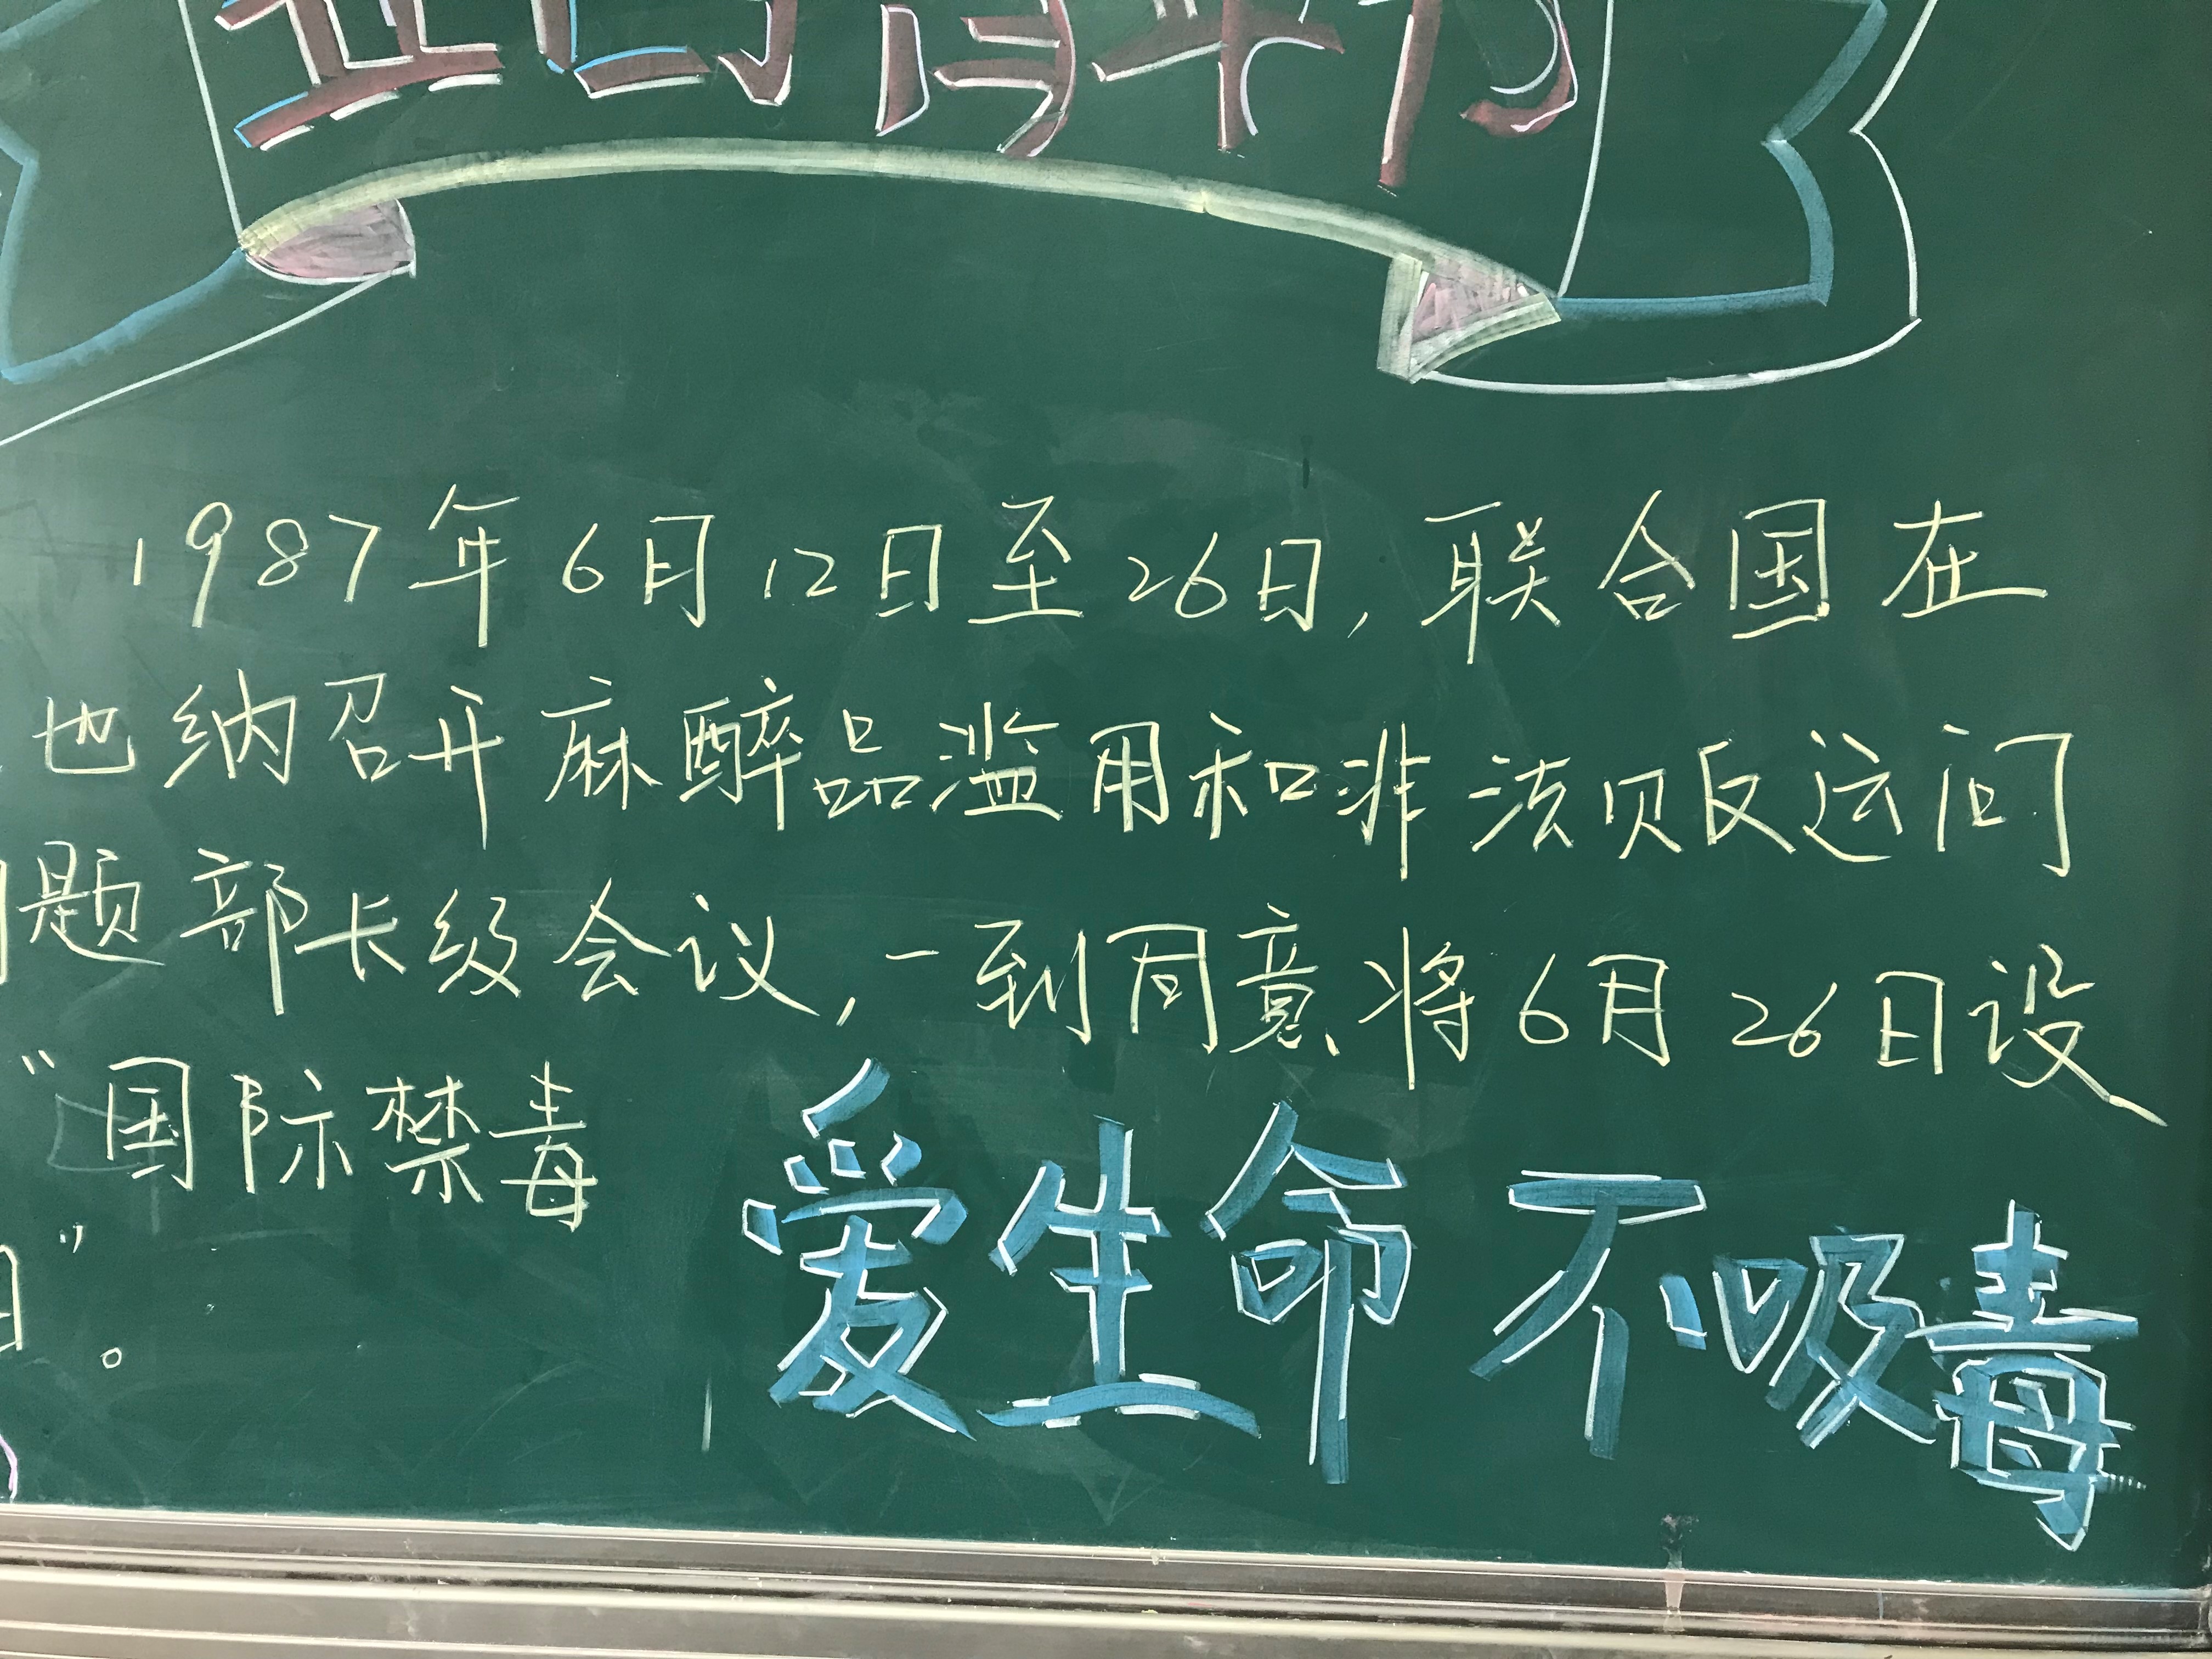 1987年6月12日至26日,联合国在
也纳召开麻醉品滥用和非法贩运问
题部长级会议,一到同意将6月26日设
"国际禁毒
日"。
爱生命 不吸毒